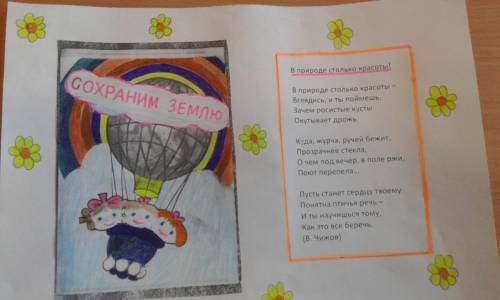 СОХРАНИМ ЗЕМЛЮ
В природе столько красоты!
В природе столько красоты –
Вглядись, и ты поймешь,
Зачем росистые кусты
Окутывает дрожь.
Куда, журча, ручей бежит,
Прозрачнее стекла,
О чем под вечер, в поле ржи,
Поют перепела...
Пусть станет сердцу твоему
Понятна птичья речь –
И ты научишься тому,
Как это все беречь.
(В. Чижов)